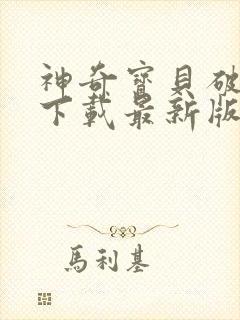 神奇寶貝破
下載最新版
馬利基